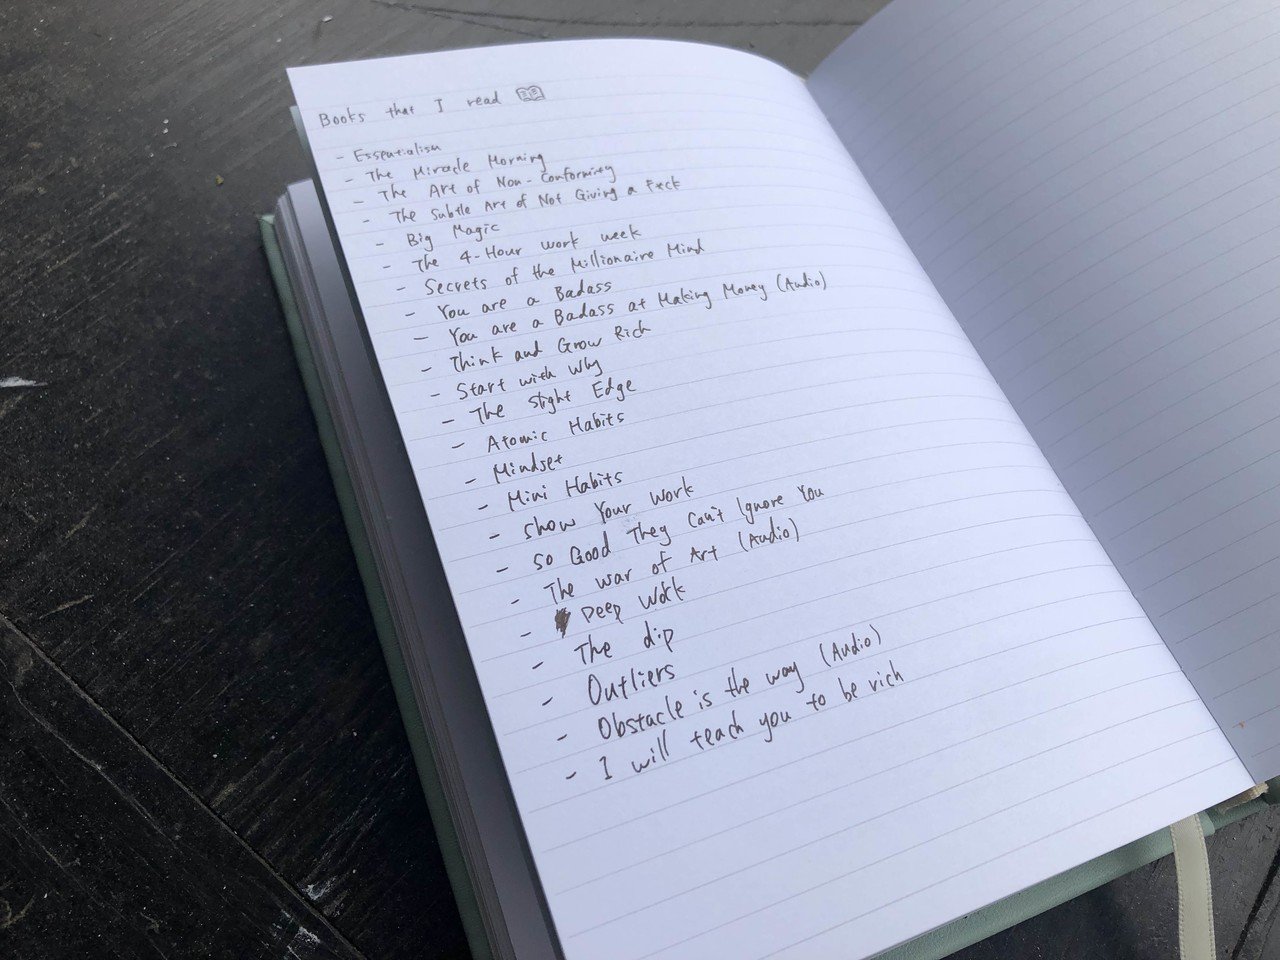 Books that I read
- Essentialism
- The Miracle Morning
- The Art of Non-Conformity
- The Subtle Art of Not Giving a F*ck
- Big Magic
- The 4-Hour work week
- Secrets of the Millionaire Mind
- You are a Badass
- You are a Badass at Making Money (Audio)
- Think and Grow Rich
- Start with Why
- The Slight Edge
- Atomic Habits
- Mindset
- Mini Habits
- Show Your Work
- So Good They Can't Ignore You
- The War of Art (Audio)
- Deep Work
- The dip
- Outliers
- Obstacle is the way (Audio)
- I will teach you to be rich